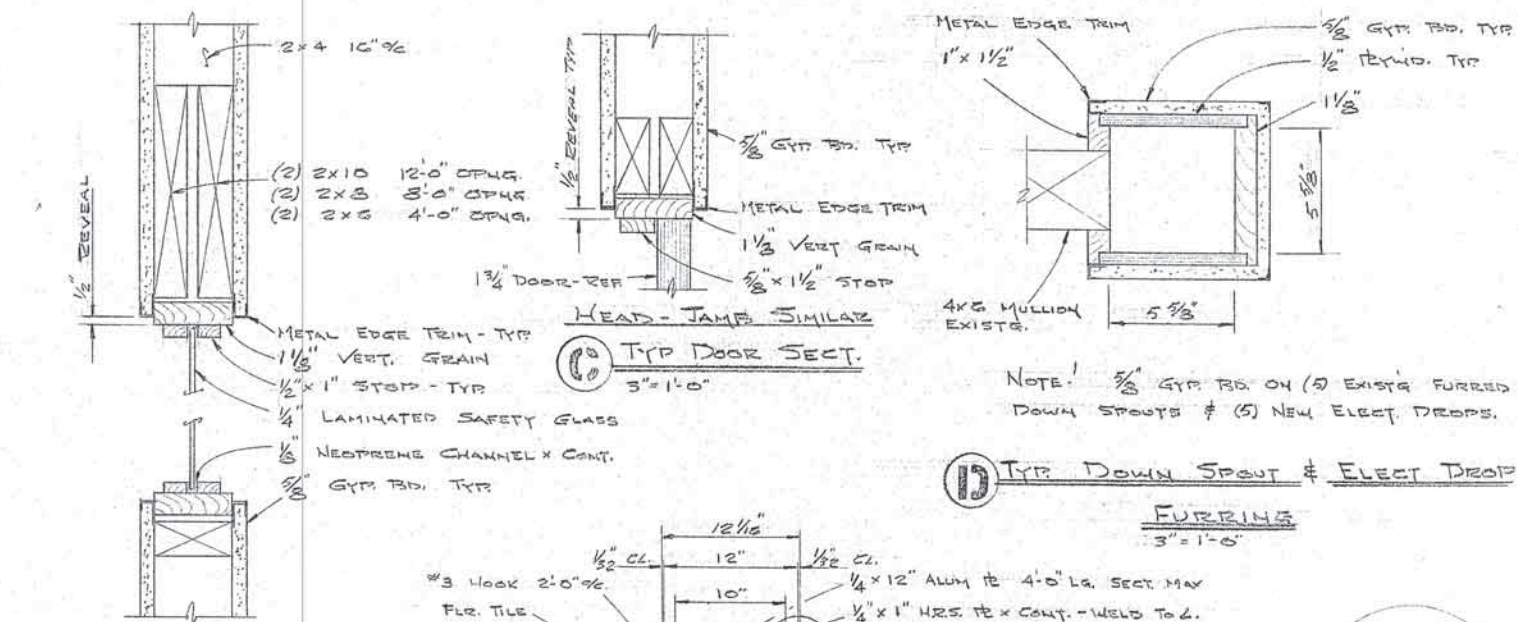 2x4 16" o/c
(2) 2x10 12'-0" OPNG.
(2) 2x8 8'-0" OPNG.
(2) 2x6 4'-0" OPNG.
1/2" REVEAL
METAL EDGE TRIM - TYP.
1 1/8" VERT. GRAIN
1/2" x 1" STOP - TYP.
1/4" LAMINATED SAFETY GLASS
1/8" NEOPRENE CHANNEL x CONT.
5/8" GYP. BD. TYP.
1/2" REVEAL TYP.
5/8" GYP. BD. TYP.
METAL EDGE TRIM
1 1/8" VERT GRAIN
5/8" x 1 1/2" STOP
1 3/4" DOOR-REF
HEAD - JAMB SIMILAR
C TYP DOOR SECT.
3" = 1'-0"
METAL EDGE TRIM
1" x 1 1/2"
5/8" GYP. BD. TYP.
1/2" PLYWD. TYP.
1 1/8"
5 5/8"
4x6 MULLION
EXIST'G.
5 5/8"
NOTE! 5/8" GYP. BD. ON (5) EXIST'G FURRED
DOWN SPOUTS & (5) NEW ELECT. DROPS.
D TYP. DOWN SPOUT & ELECT DROP
FURRING
3" = 1'-0"
12 1/16"
1/32" CL. 12" 1/32" CL.
10"
#3 HOOK 2'-0" o/c.
FLR. TILE
1/4 x 12" ALUM PL 4'-0" LG. SECT. MAX
1/4" x 1" H.R.S. PL x CONT. - WELD TO L.